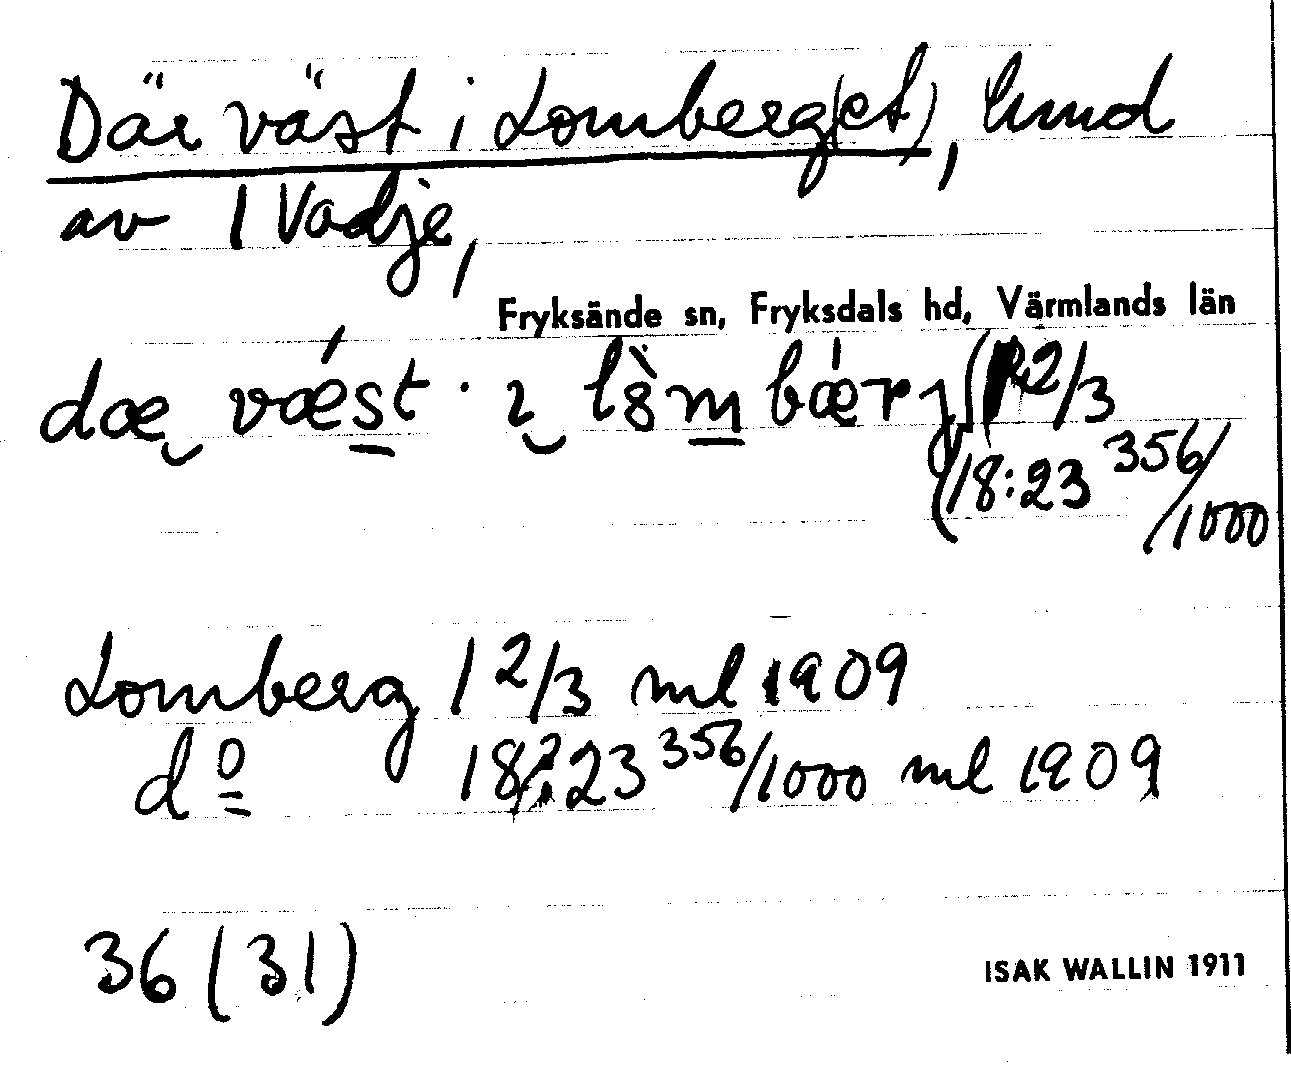 Där väst i Lomberg(et), lund
av 1 Vadje,
Fryksände sn, Fryksdals hd, Värmlands län
dæ væst · ı l8̀m bærj (1 2/3
(18:23 356/1000
Lomberg 1 2/3 ml 1909
dº 18:23 356/1000 ml 1909
36 (31)
ISAK WALLIN 1911